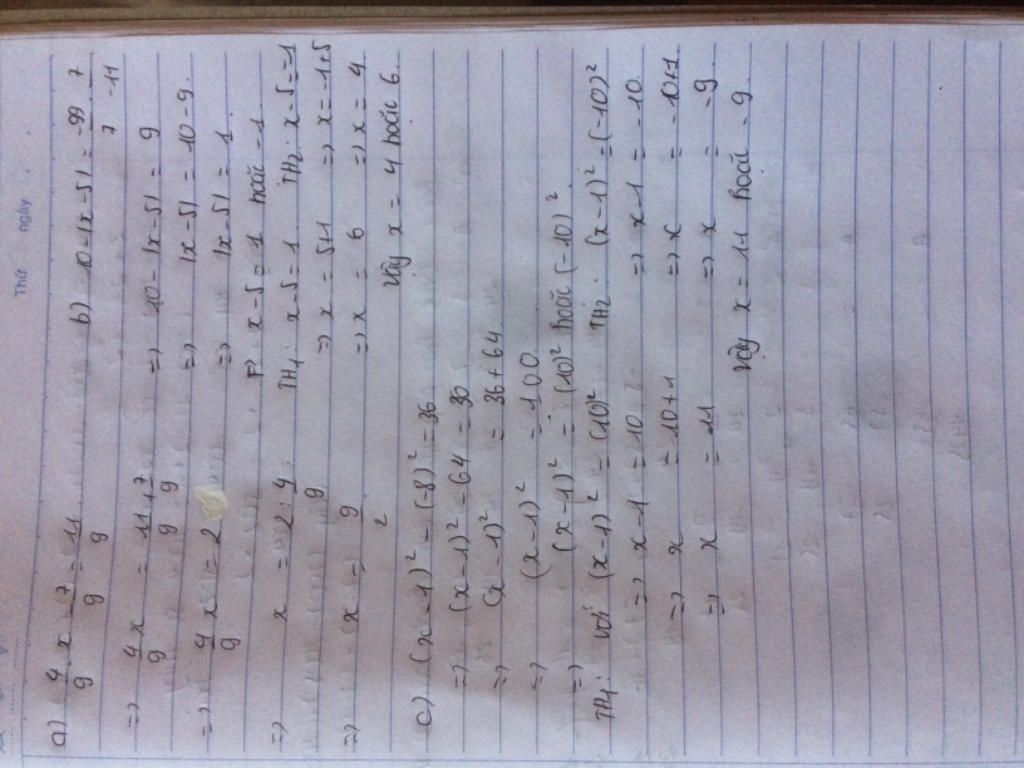 Thứ ngày
a) 4/9 x - 7/9 = 11/9
=> 4/9 x = 11/9 + 7/9
=> 4/9 x = 2
=> x = 2 : 4/9
=> x = 9/2
b) 10 - |x - 5| = -99/7 . 7/-11
=> 10 - |x - 5| = 9
=> |x - 5| = 10 - 9.
=> |x - 5| = 1.
=> x - 5 = 1 hoặc -1
TH1: x - 5 = 1 TH2: x - 5 = -1
=> x = 5+1 => x = -1+5
=> x = 6 => x = 4
Vậy x = 4 hoặc 6.
c) (x - 1)² - (-8)² = 36
=> (x - 1)² - 64 = 30
=> (x - 1)² = 36 + 64
=> (x - 1)² = 100
=> (x - 1)² = (10)² hoặc (-10)²
TH1: với (x - 1)² = (10)² TH2: (x - 1)² = (-10)²
=> x - 1 = 10 => x - 1 = -10
=> x = 10 + 1 => x = -10+1
=> x = 11 => x = -9
Vậy x = 11 hoặc -9.